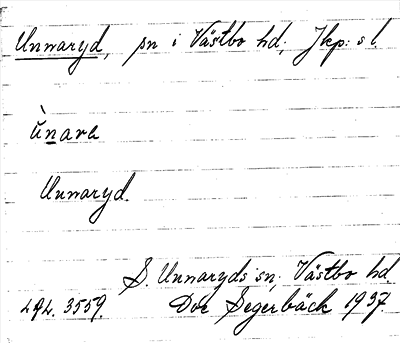 Unnaryd, sn i Västbo hd, Jkp: s l.
ùnare
Unnaryd.
S. Unnaryds sn, Västbo hd.
LAL. 3559. Dor Segerbäck 1937.